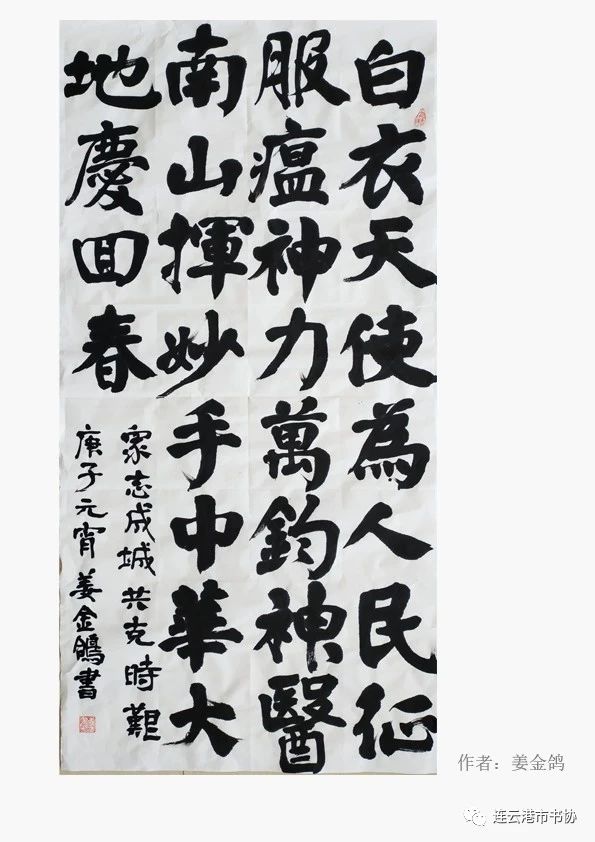 白衣天使為人民征
服瘟神力萬鈞神醫
南山揮妙手中華大
地慶回春
衆志成城共克時艱
庚子元宵姜金鴿書
作者：姜金鸽
连云港市书协